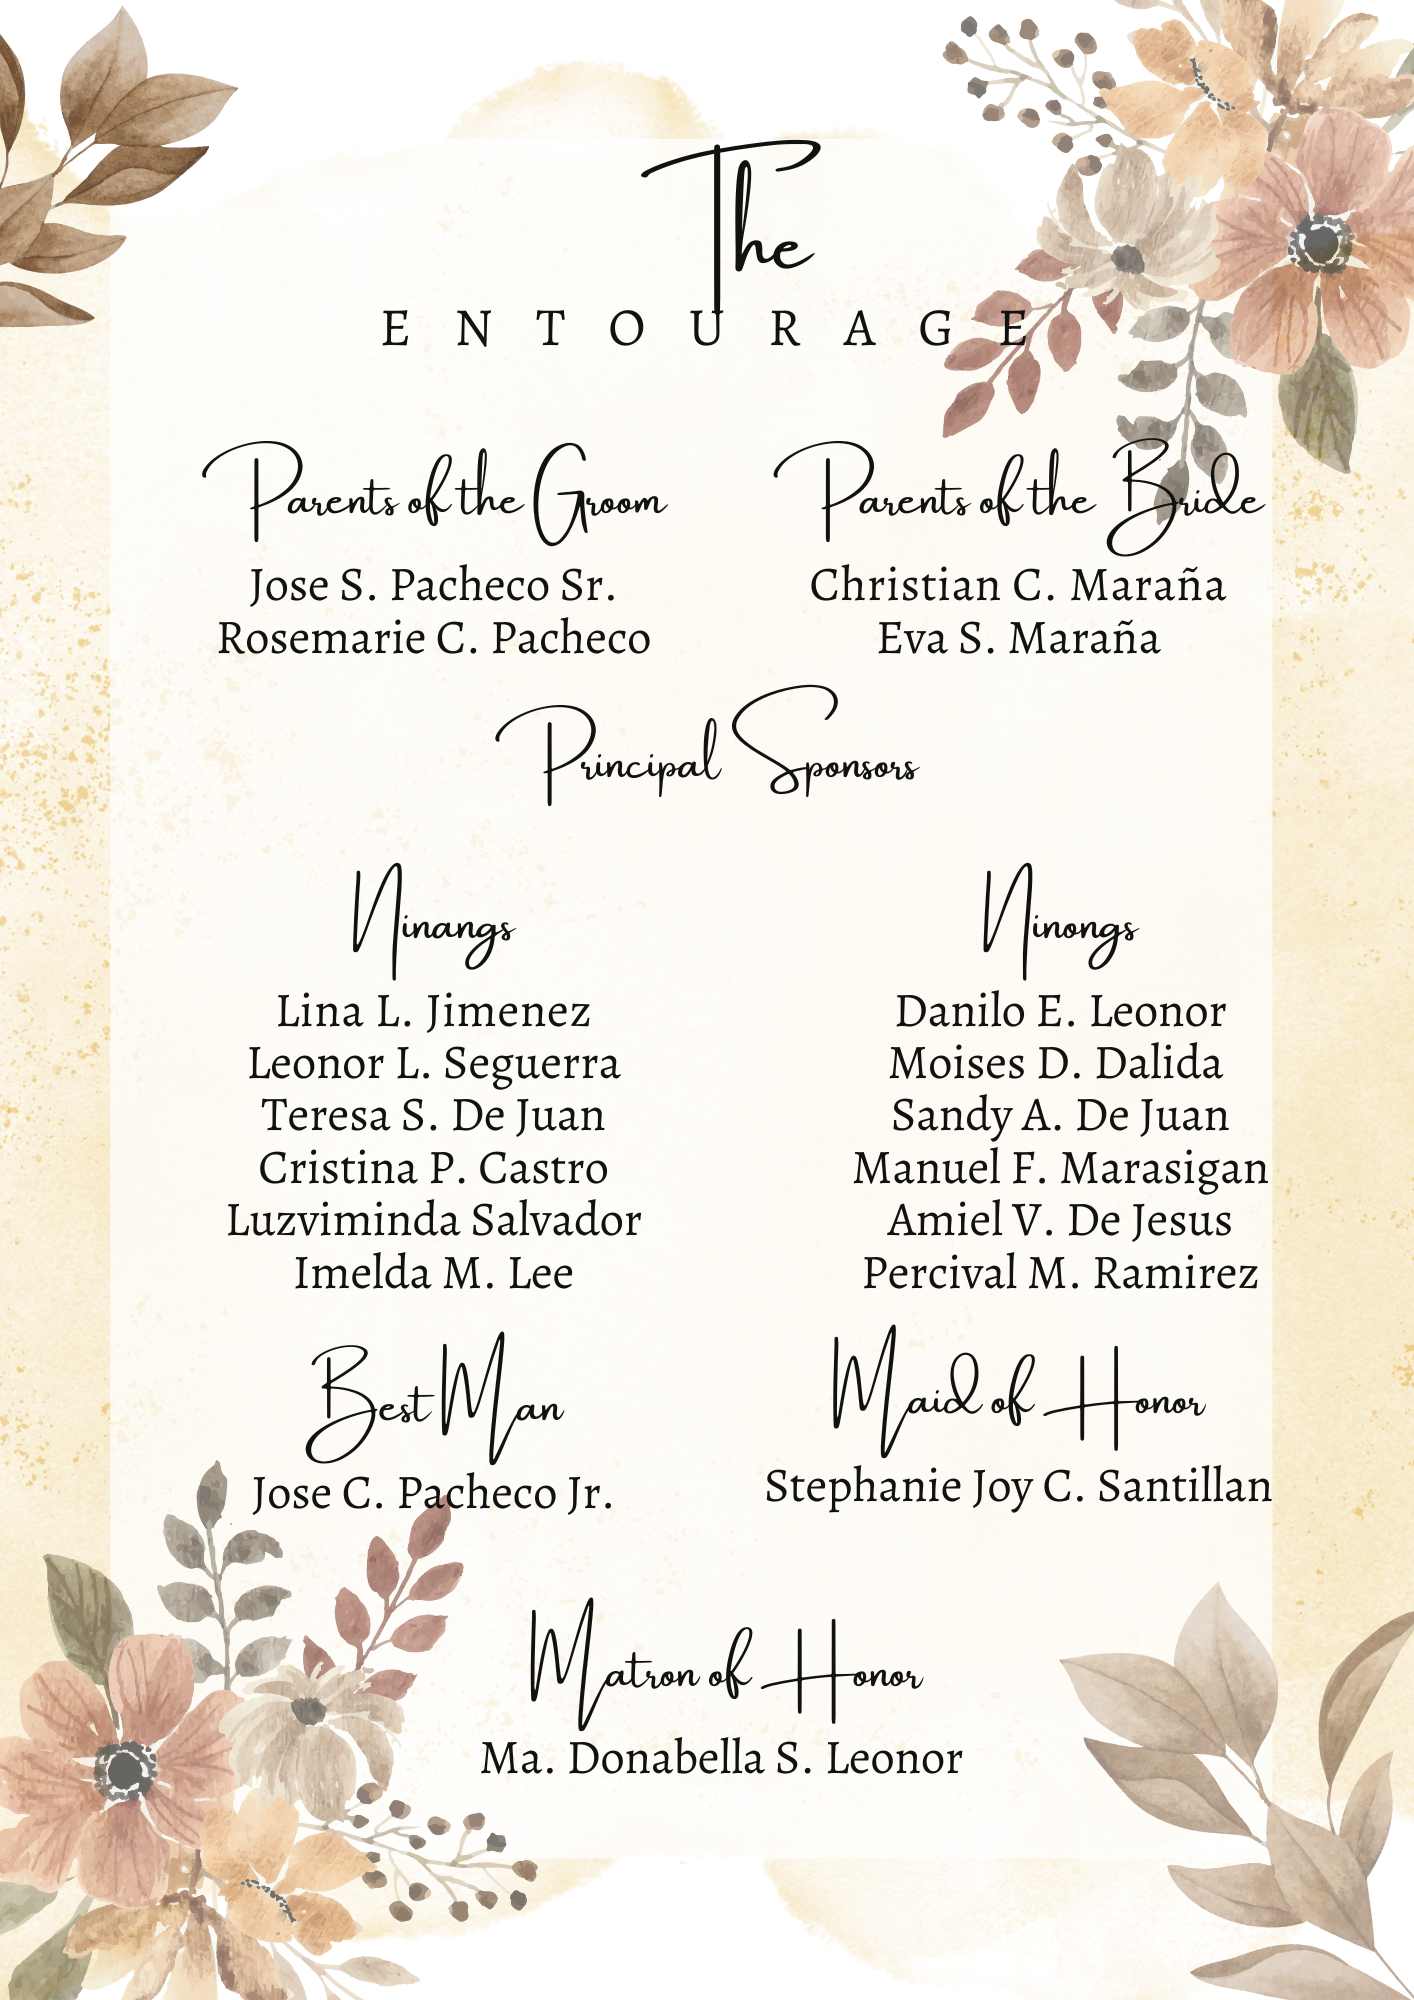 The
ENTOURAGE
Parents of the Groom
Jose S. Pacheco Sr.
Rosemarie C. Pacheco
Parents of the Bride
Christian C. Maraña
Eva S. Maraña
Principal Sponsors
Ninangs
Lina L. Jimenez
Leonor L. Seguerra
Teresa S. De Juan
Cristina P. Castro
Luzviminda Salvador
Imelda M. Lee
Ninongs
Danilo E. Leonor
Moises D. Dalida
Sandy A. De Juan
Manuel F. Marasigan
Amiel V. De Jesus
Percival M. Ramirez
Best Man
Jose C. Pacheco Jr.
Maid of Honor
Stephanie Joy C. Santillan
Matron of Honor
Ma. Donabella S. Leonor